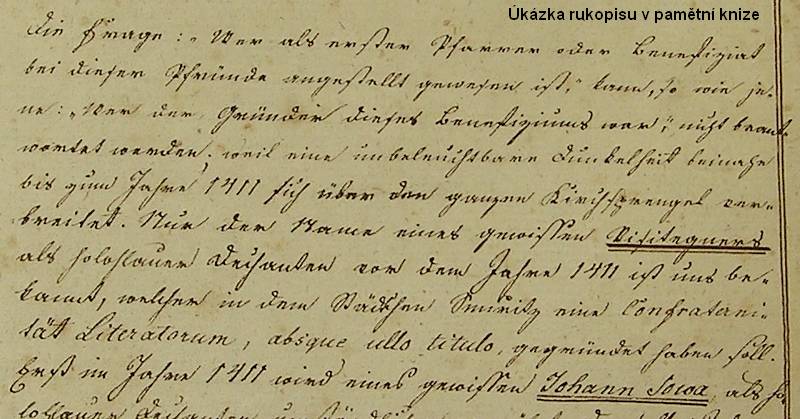 Úkázka rukopisu v pamětní knize
Die Frage: „Wer als erster Pfarrer oder Benefiziat
bei dieser Pfründe angestellt gewesen ist," kann, so wie je-
ne: „Wer der Gründer dieses Benefiziums war", nicht beant-
wortet werden, weil eine unbeleuchtbare Dunkelheit beinahe
bis zum Jahre 1411 sich über den ganzen Kirchsprengel ver-
breitet. Nur der Name eines gewissen
als Holohlauer Dechanten vor dem Jahre 1411 ist uns be-
kannt, welcher in dem Städtchen Smiritz eine Confraterni-
tät Literatorum, absque ullo titulo, gegründet haben soll.
Erst im Jahre 1411 wird eines gewissen Johann Sowa, als Ho-
lohlauer Dechanten